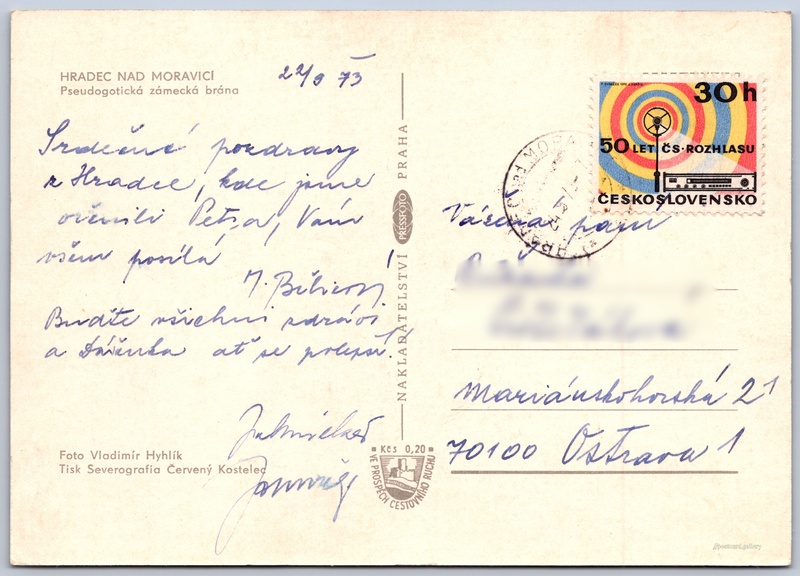 HRADEC NAD MORAVICÍ
Pseudogotická zámecká brána
22/9 73
Srdečné pozdravy
z Hradce, kde jsme
oženili Petra, Vám
všem posílá
Buďte všichni zdrávi
a Dášenka ať se polepší!
Foto Vladimír Hyhlík
Tisk Severografia Červený Kostelec
NAKLADATELSTVÍ PRESSFOTO PRAHA
Kčs 0,20
VE PROSPĚCH CESTOVNÍHO RUCHU
30 h
50 LET ČS. ROZHLASU
ČESKOSLOVENSKO
Vážená paní
Mariánskohorská 21
70100 Ostrava 1